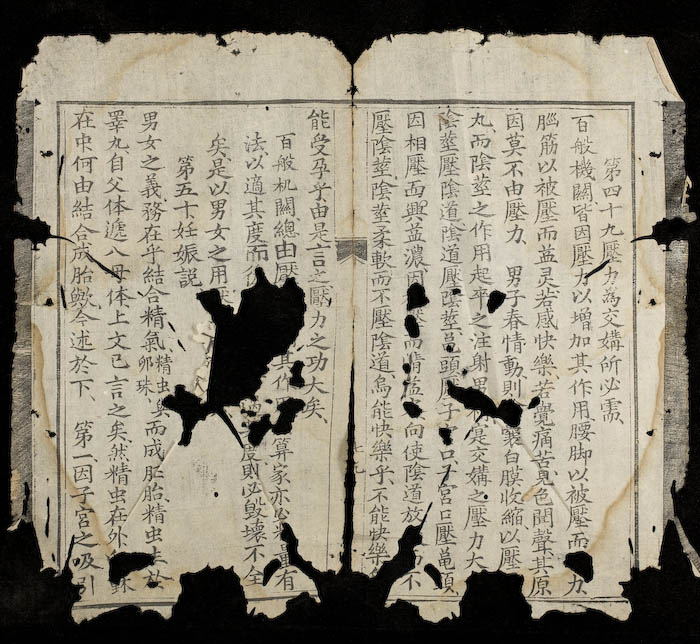 第四十九壓力為交媾所必需、
百般機關、皆因壓力以增加其作用腰脚以被壓而 力、
腦筋以被壓而益灵、若感快樂、若覺痛苦、見色聞聲、其原
因莫不由壓力、 男子春情動則 白膜收縮以壓
丸、而陰莖之作用起卒之注射 是交媾之壓力大
陰莖壓陰道、陰道壓陰莖、龜頭壓子宮口、子宮口壓龜頭、
因相壓而興益濃、因 而情益 向使陰道放 而不
壓陰莖、陰莖柔軟而不壓陰道、烏能快樂乎、不能快樂
能受孕乎、由是言之、壓力之功大矣、
百般机關、總由壓 其作用 算家亦必 量有
法以適其度、而後 度則必毀壞不全
矣、是以男女之用
第五十、妊娠説
男女之義務在乎結合精氣精虫卵珠、矣而成胚胎、精虫生於
睪丸、自父体遞入母体、上文已言之矣、然精虫在外 珠
在中、何由結合成胎歟、今述於下、 第一、因子宮之吸引